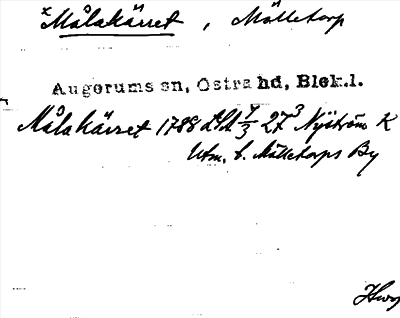 x Målakärret, Mölletorp
Augerums sn, Östra hd, Blek.l.
Målakärret 1788 LSA 27³ Nyström K
Utm. t. Mölletorps By